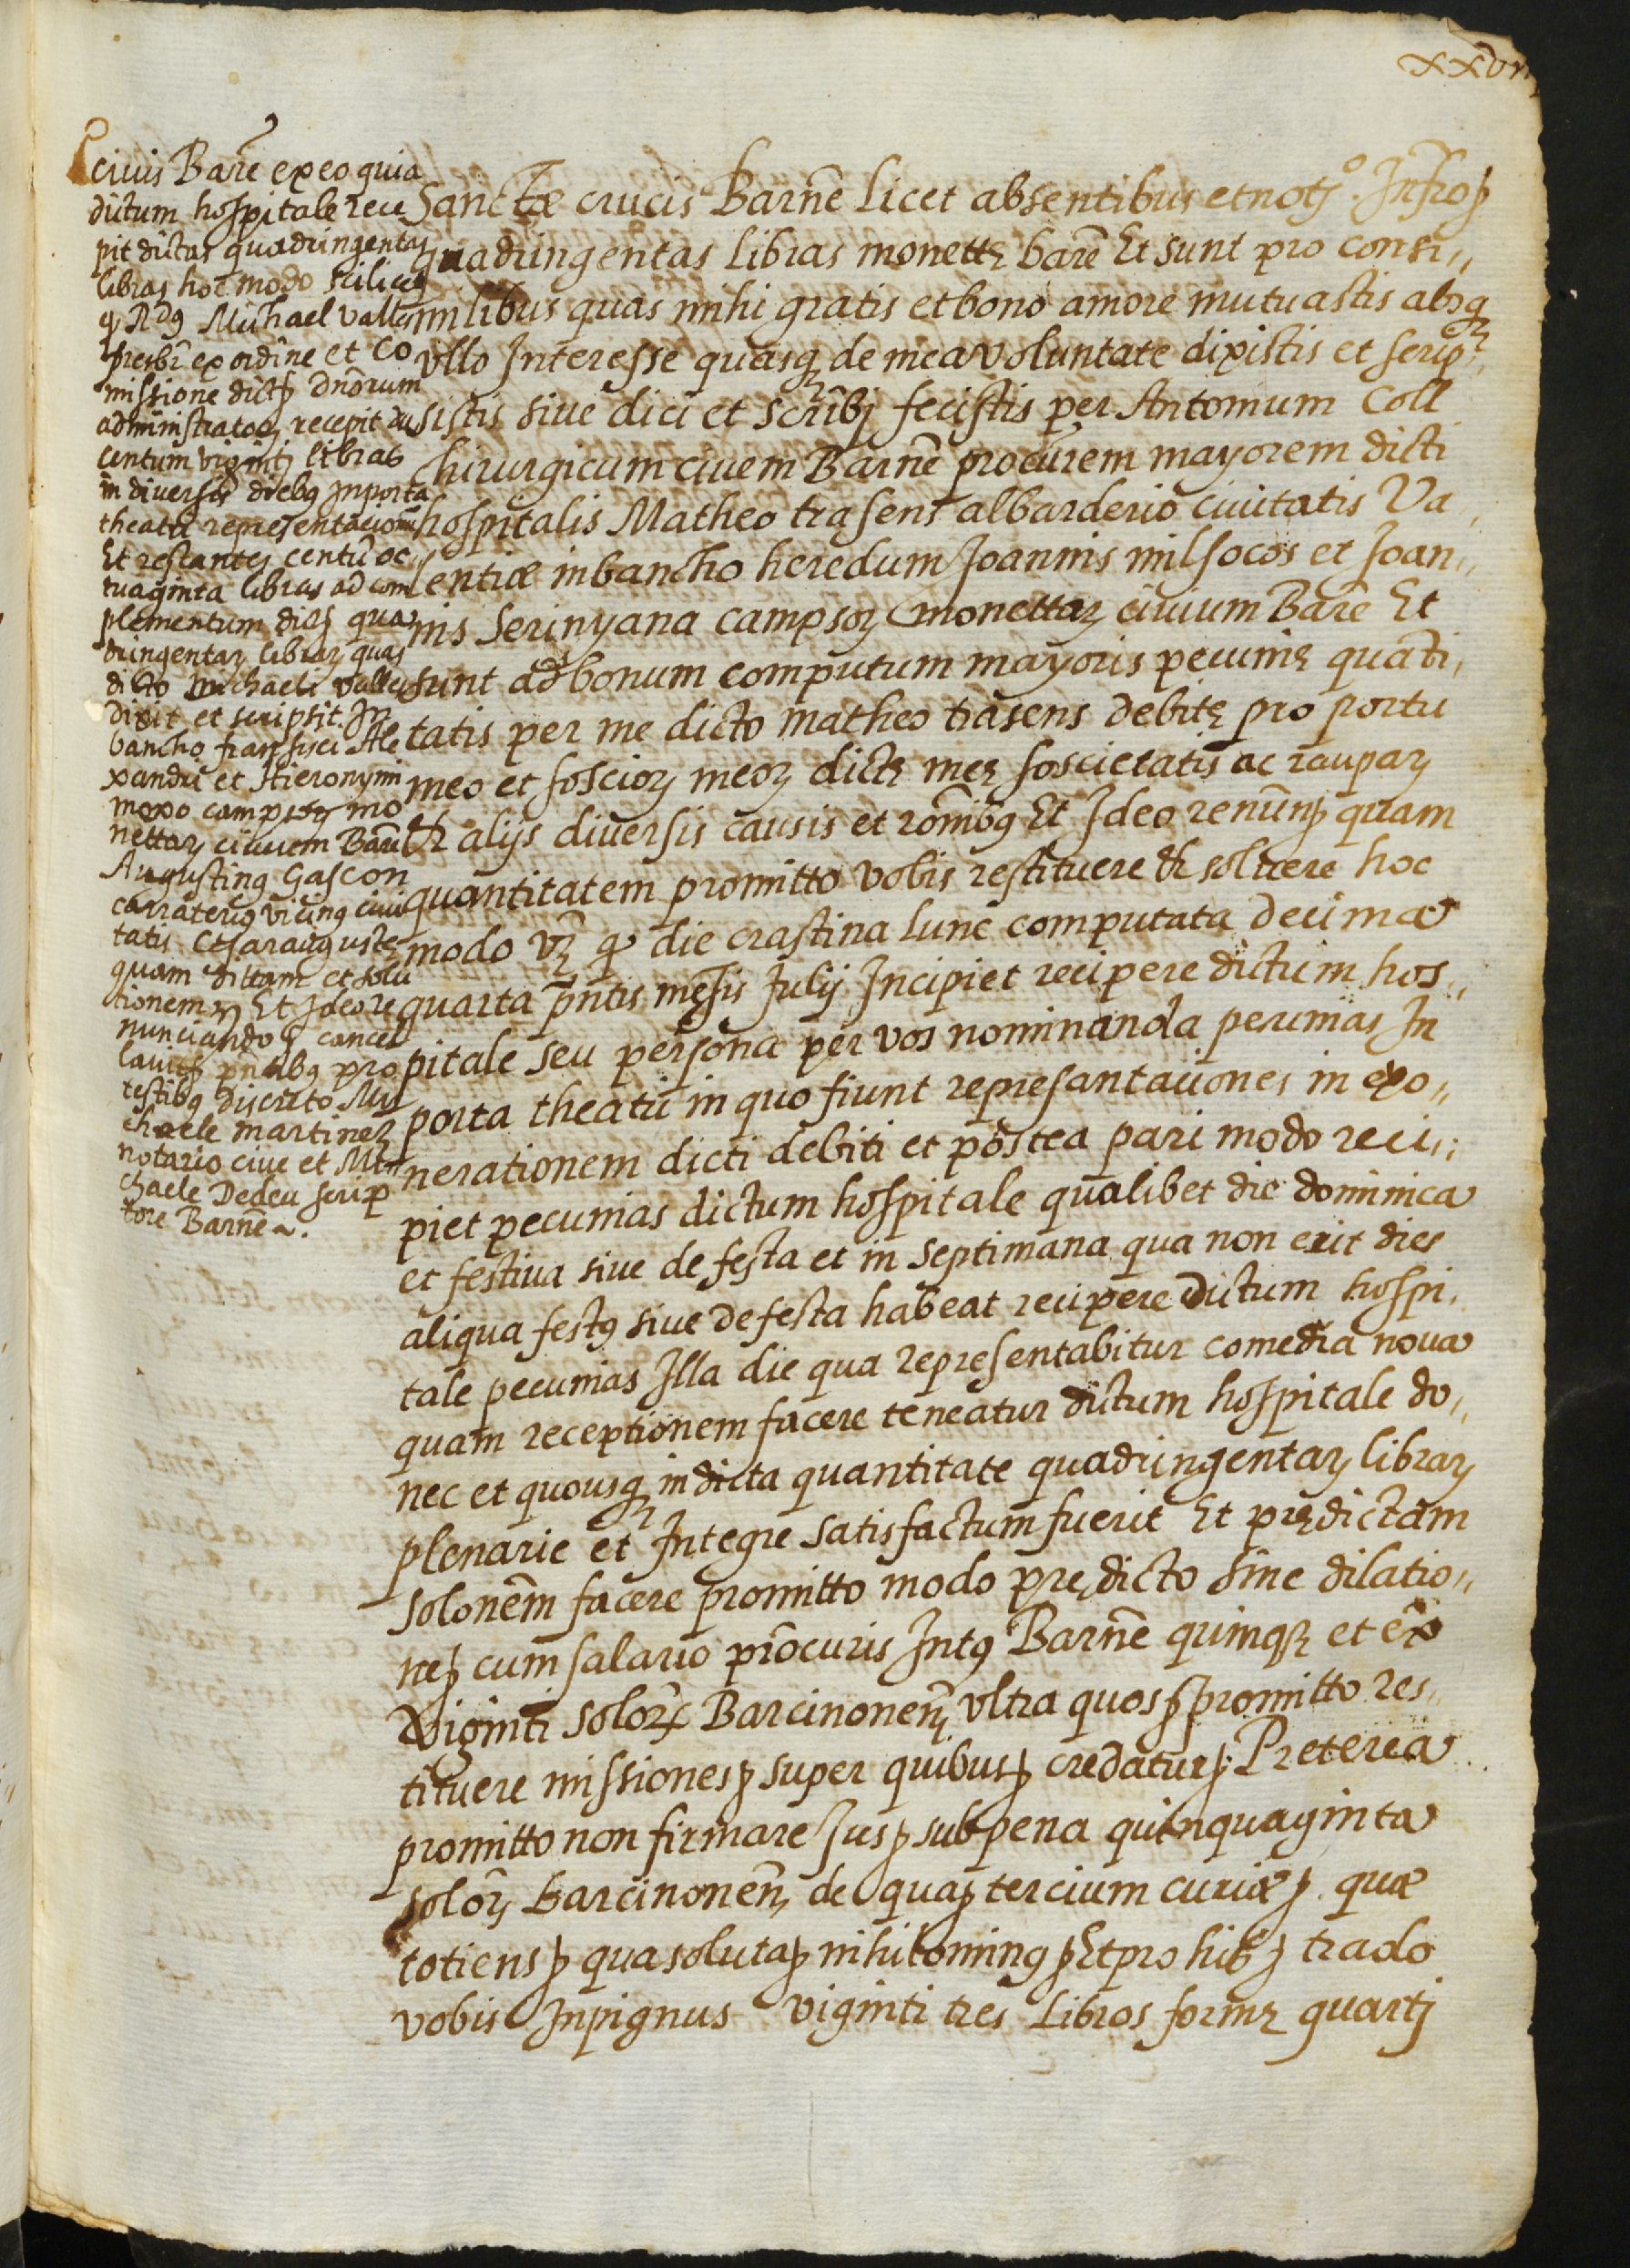 xxvii
civis Barñe ex eo quia
dictum hospitale rece
pit dictas quadringentas
libras hoc modo scilicet
q Rdus Michael valles
presbr ex ordine et co
missione dictorum dnorum
administrator recepit du
centum viginti libras
in diversis diebus in porta
theatri representacionum
Et restantes centũ oc
tuaginta libras ad com
plementum
dringentar librar quas
dicto Michaeli valles
dixit et scripsit In
bancho fransisci Ale
xandri et Hieronymi
moxo campsor mo
nettar civium Barñe
Augustinus Gascon
carraterius vicinus civi
tatis Cesarauguste
quam dittam et solu
tionem Et Ideo re
nunciando cancel
lavit pñtibus pro
testibus discreto Mi
chaele martinez
notario cive et Mi
chaele Dedeu scrip
tore Barñe ~.
Sanctæ crucis Barñe licet absentibus et noto. Infrap
quadringentas libras monette barñe Et sunt pro consi„
milibus quas mihi gratis et bono amore mutuastis absq
ullo Interesse quasq de mea voluntate dixistis et scrip„
sistis sive dici et scribj fecistis per Antonium Coll
chirurgicum civem Barñe procurem mayorem dicti
hospitalis Matheo trasens albarderio civitatis Va„
lentiæ in bancho heredum Joannis milsocos et Joan„
nis Serinyana campsor monettar civium Barñe Et
sunt ad bonum computum mayoris pecunie quati„
tatis per me dicto matheo trasens debite pro portu
meo et soscior meor dicte mee soscietatis ac raupar
et alijs diversis causis et rõnibus Et Ideo renunp quam
quantitatem promitto vobis restituere et solvere hoc
modo vz q die crastina lune computata decima
quarta pñtis mesis Julij Incipiet recipere dictum hos„
pitale seu persona per vos nominanda pecunias In
porta theatri in quo fiunt represantaciones in exo„
nerationem dicti debiti et postea pari modo reci„
piet pecunias dictum hospitale qualibet die dominica
et festiva sive de festa et in septimana qua non erit dies
aliqua festus sive de festa habeat recipere dictum hospi„
tale pecunias Illa die qua representabitur comedia nova
quam receptionem facere teneatur dictum hospitale do„
nec et quousq in dicta quantitate quadringentar librar
plenarie et Integre satisfactum fuerit Et predictam
solonem facere promitto modo predicto sine dilatio„
nep cum salario procuris Intus Barñe quinque et exa
viginti solor Barcinonen ultra quos p promitto res„
tituere missiones p super quibus p credatur p Preterea
promitto non firmare Jus p sub pena quinquaginta
solor Barcinonen de qua p tercium curiæ p quæ
totiens p qua soluta p nihilominus p Et pro his p trado
vobis Inpignus viginti tres libros forme quartj